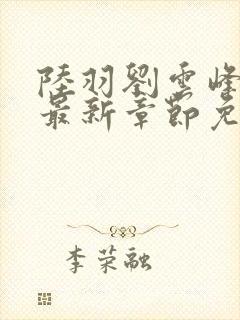 陸羽劉雲峰
最新章節免
李荣融